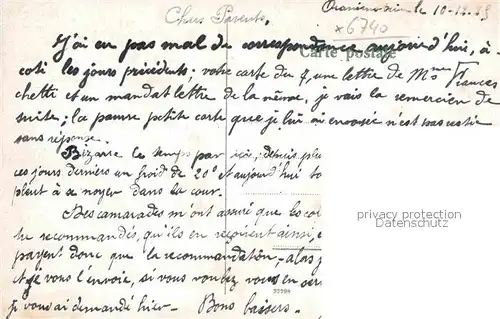 Chers Parents,
le 10-12.
x6740
Carte postale
J'ai eu pas mal de correspondance aujourd'hui, à
coté les jours précédents ; votre carte du 7, une lettre de Frances
chetti et un mandat lettre de la même, je vais la remercier de
suite ; la pauvre petite carte que je lui ai envoyée n'est pas restée
sans réponse.
Bizarre le temps par ici ; depuis plu
ces jours derniers un froid de 20° et aujourd'hui
pleut à se noyer dans la cour.
privacy protection
Datenschutz
Des camarades m'ont assuré que les co
tu recommandés, qu'ils en reçoivent ainsi, e
payent donc que la recommandation, alors
et je vous l'envoie, si vous voulez vous en ser
je vous ai demandé hier - Bons baisers -